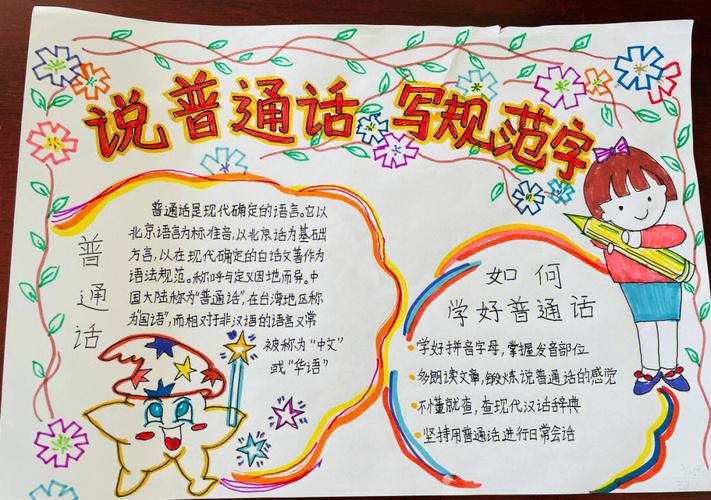 说普通话 写规范字
普通话
普通话是现代确定的语言。它以
北京语言为标准音,以北京话为基础
方言,以在现代确定的白话文著作为
语法规范。称呼与定义因地而异。中
国大陆称为“普通话”,在台湾地区称
为“国语”,而相对于非汉语的语言又常
被称为“中文”
或“华语”
如何
学好普通话
·学好拼音字母,掌握发音部位
·多朗读文章,锻炼说普通话的感觉
·不懂就查,查现代汉话辞典
·坚持用普通话进行日常会话